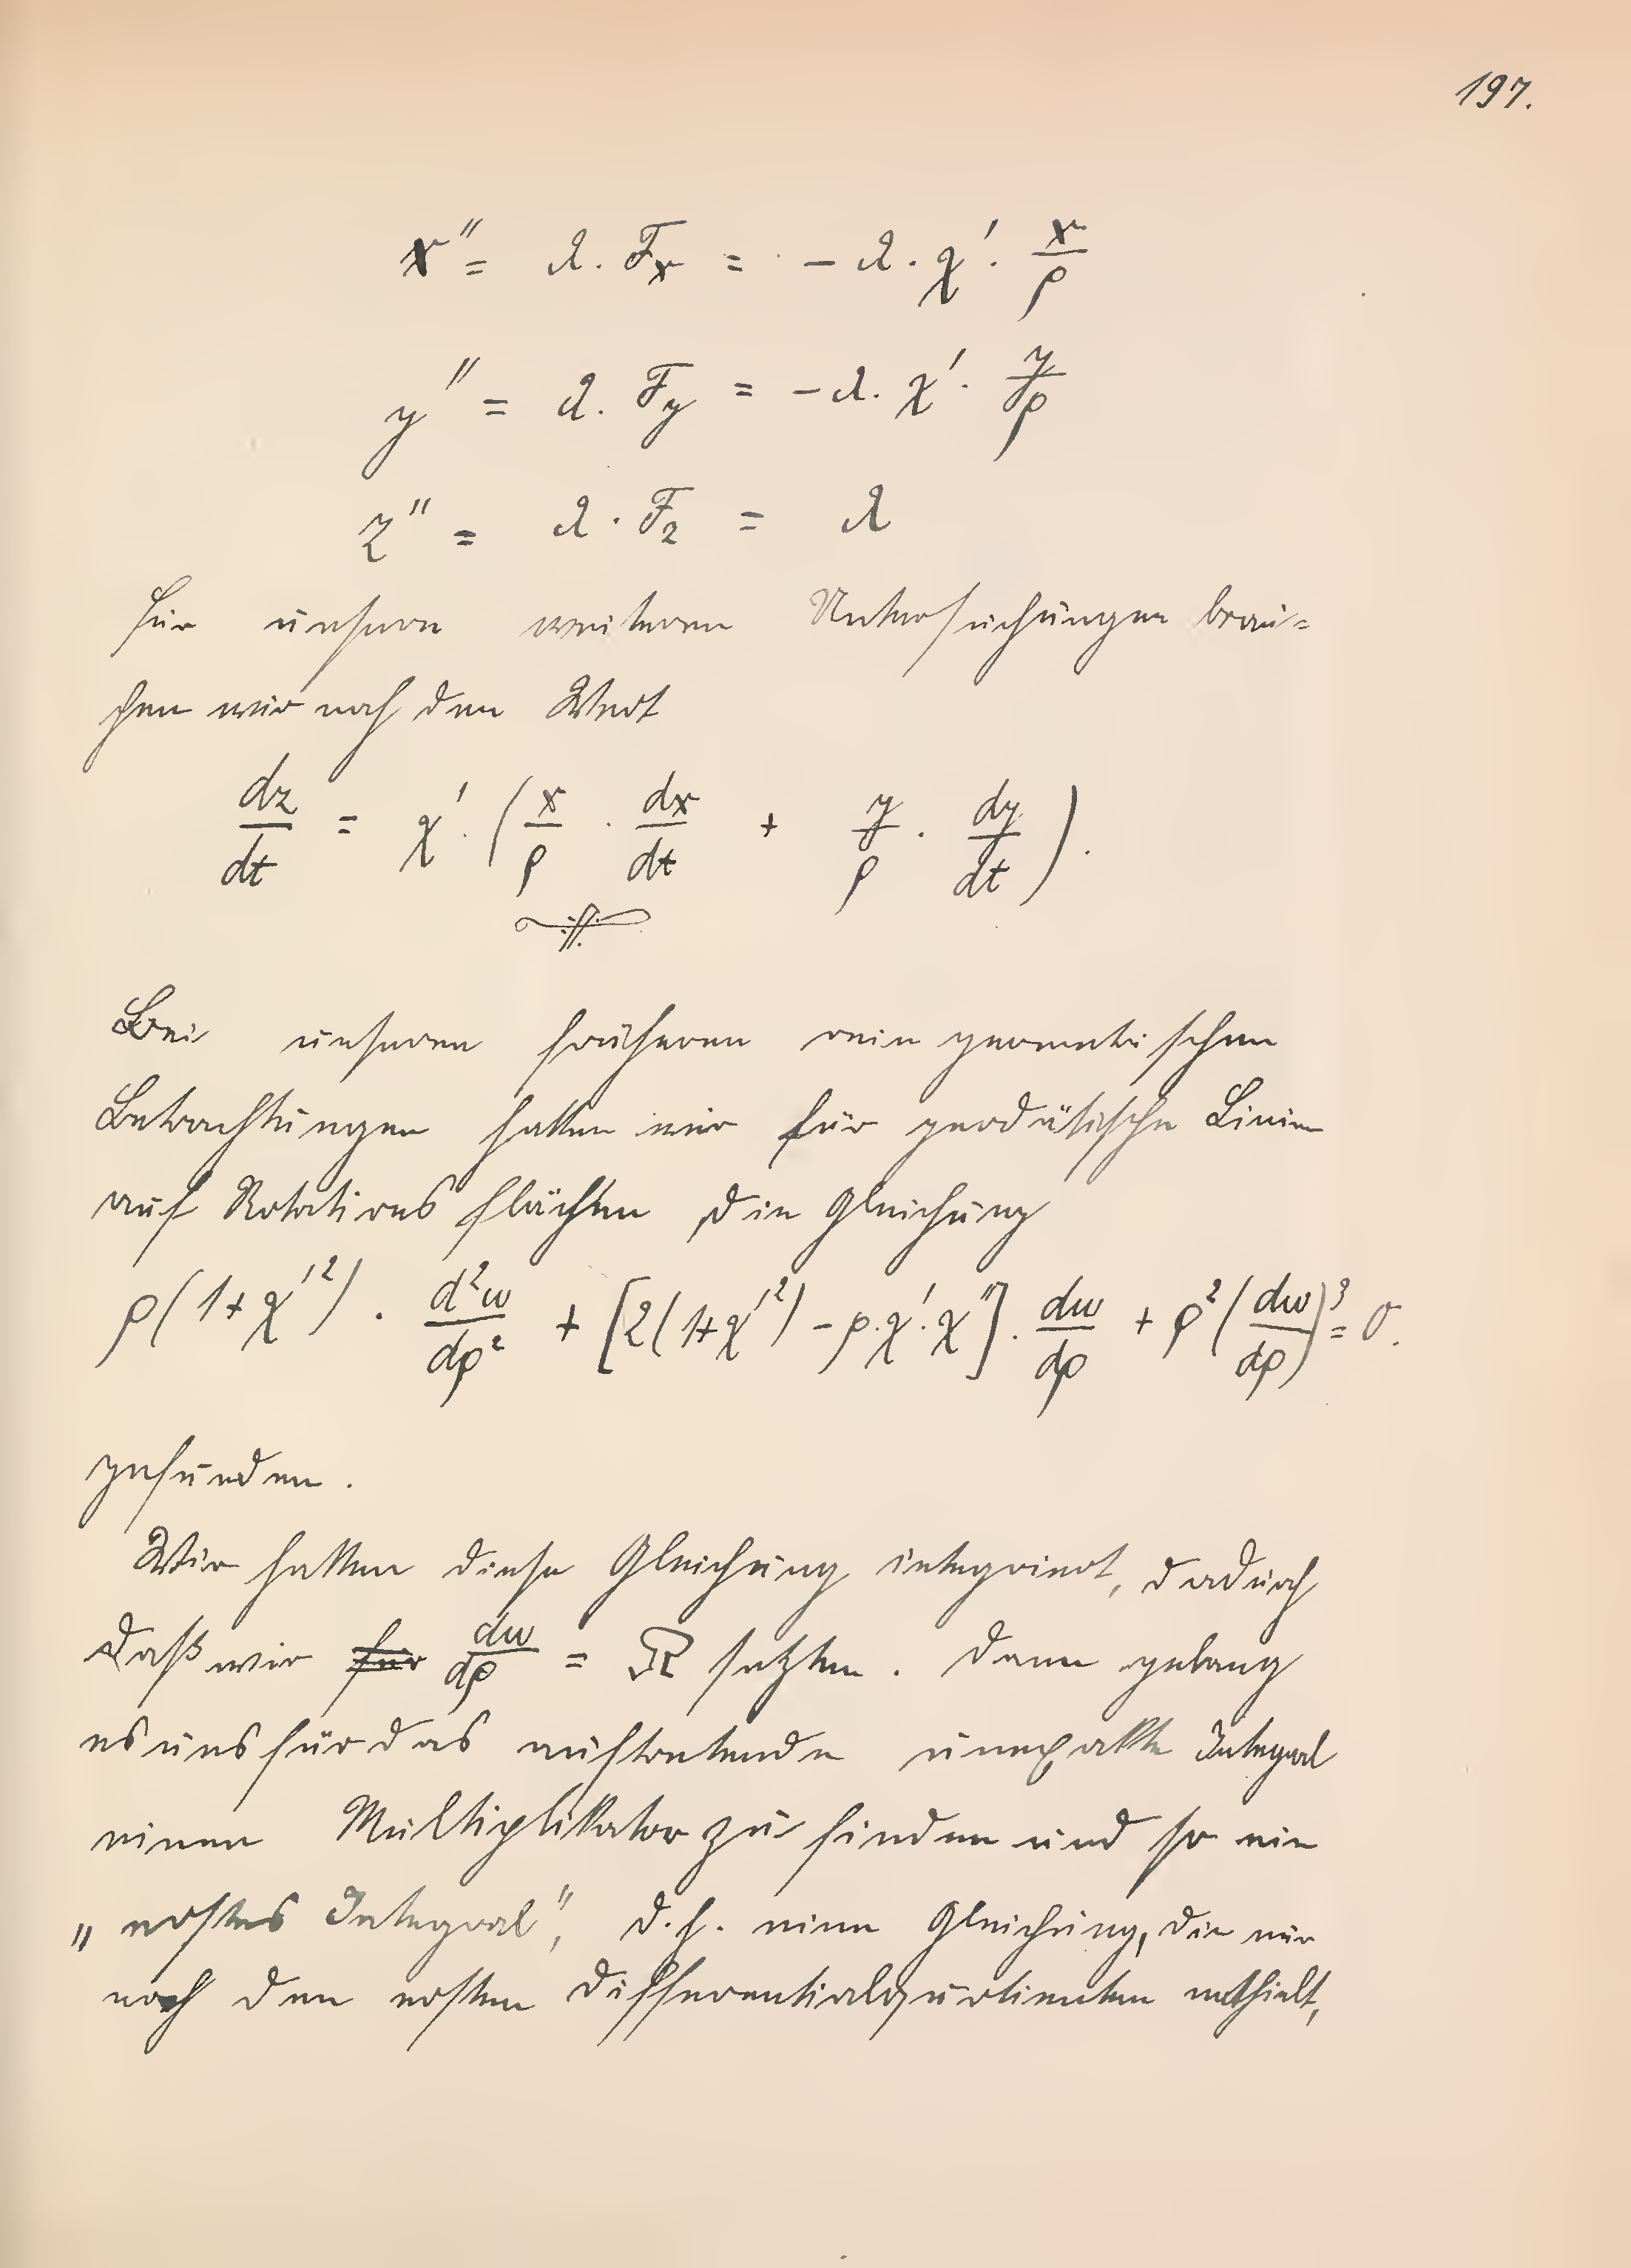 197.
x'' = λ · F_x = − λ · χ' · x/ρ
y'' = λ · F_y = − λ · χ' · y/ρ
z'' = λ · F_z = λ
Für unsern weiteren Untersuchungen brau=
chen wir noch den Wert
dz/dt = χ' · (x/ρ · dx/dt + y/ρ · dy/dt).
Bei unseren früheren rein geometrischen
Betrachtungen hatten wir für geodätische Linien
auf Rotationsflächen die Gleichung
ρ(1+χ'²) · d²ω/dρ² + [2(1+χ'²) − ρ·χ'·χ''] · dω/dρ + ρ²(dω/dρ)³ = 0.
gefunden.
Wir hatten diese Gleichung integriert, dadurch
daß wir für dω/dρ = Ω setzten. Dann gelang
es uns für das auftretende unexakte Integral
einen Multiplikator zu finden und so ein
„erstes Integral", d.h. eine Gleichung, die nur
noch den ersten Differentialquotienten enthielt,